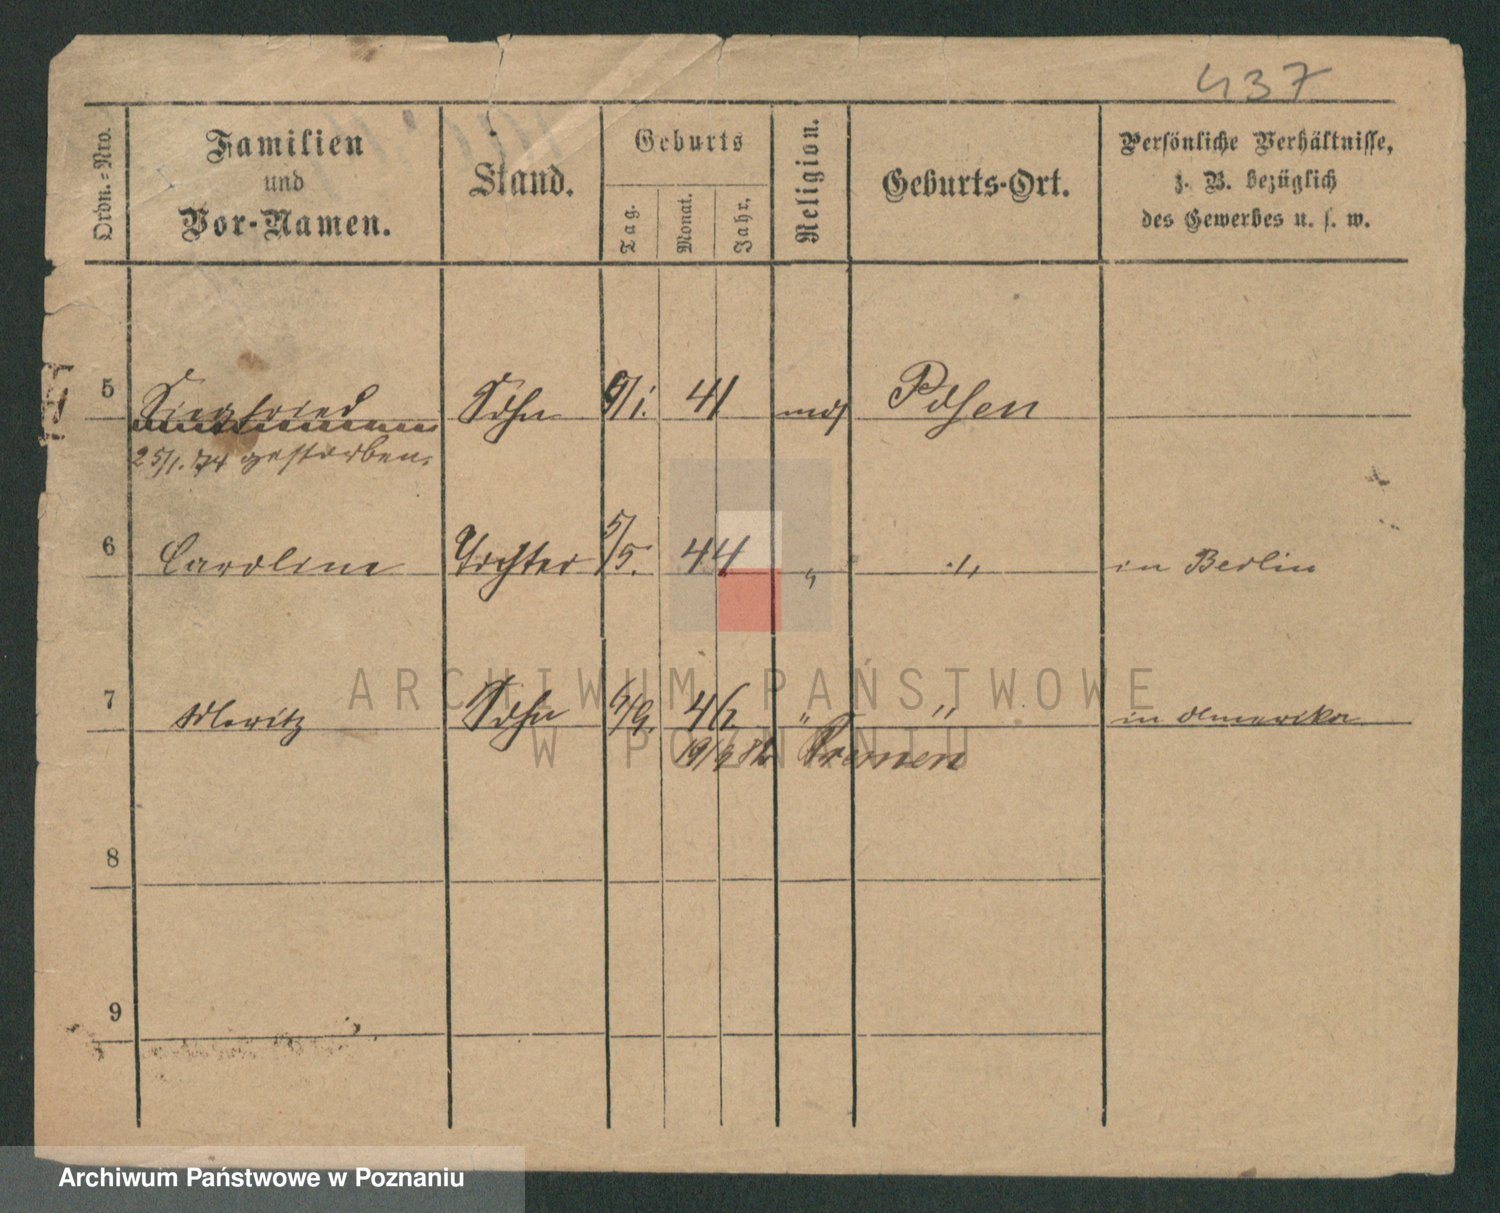 437
Ordn.-Nro.
Familien
und
Vor-Namen.
Stand.
Geburts
Tag.
Monat.
Jahr.
Religion.
Geburts-Ort.
Persönliche Verhältnisse,
z. B. bezüglich
des Gewerbes u. s. w.
5 Siegfried Sohn 9/1. 41 mos Posen
25/1. 74 gestorben.
6 Caroline Tochter 5/5. 44 " " in Berlin
7 Moritz Sohn 46 " " in Amerika
Bremen
8
9
ARCHIWUM PAŃSTWOWE
W POZNANIU
Archiwum Państwowe w Poznaniu